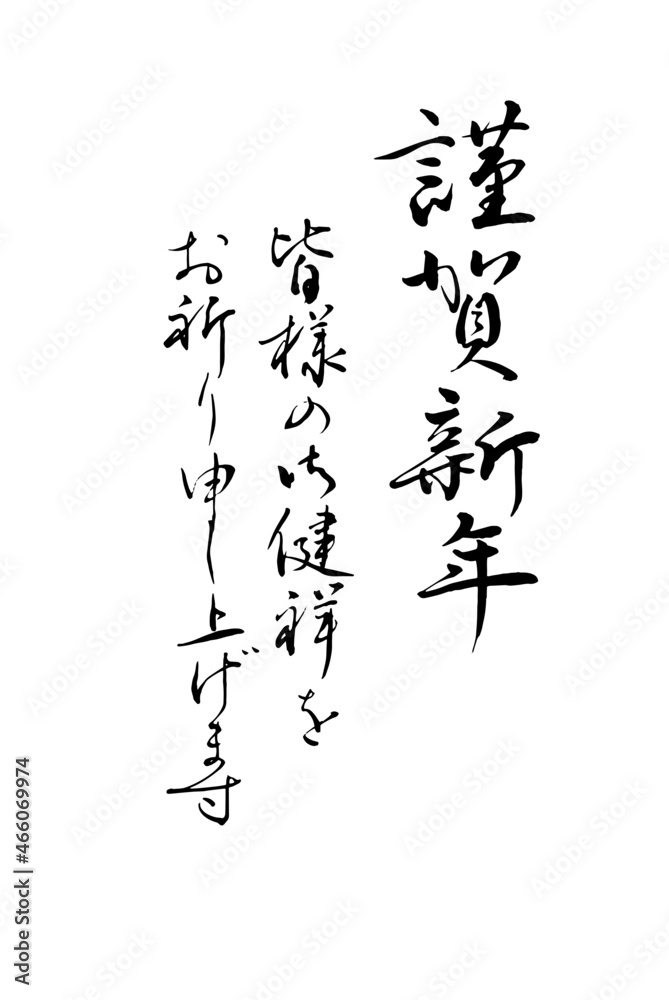 謹賀新年
皆様の御健祥を
お祈り申し上げます
Adobe Stock | #466069974